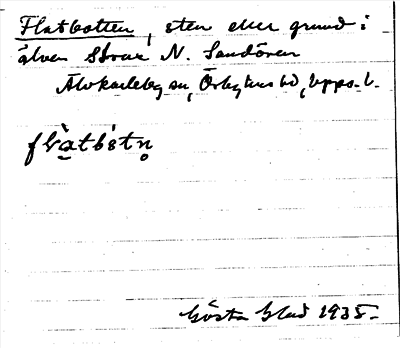 Flatbotten, sten eller grund i
älven Storar N. Sandören
Älvkarleby sn, Örbyhus hd, Upps. l.
flàtbótn̥
Gösta Blad 1935.